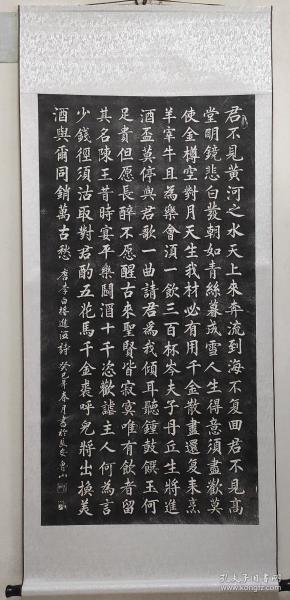 君不見黃河之水天上來奔流到海不复回君不見高
堂明鏡悲白發朝如青絲暮成雪人生得意須盡歡莫
使金樽空對月天生我材必有用千金散盡還复来烹
羊宰牛且為樂會須一飲三百杯岑夫子丹丘生將進
酒盃莫停與君歌一曲請君為我傾耳聽鍾鼓饌玉何
足貴但愿長醉不愿醒古來聖賢皆寂寞唯有飲者留
其名陳王昔時宴平樂鬪酒十千恣歡謔主人何為言
少錢徑須沽取對君酌五花馬千金裘呼兒將出換美
酒與爾同銷萬古愁 唐李白將進酒詩 癸巳年春月書於長安
孔夫子旧书网